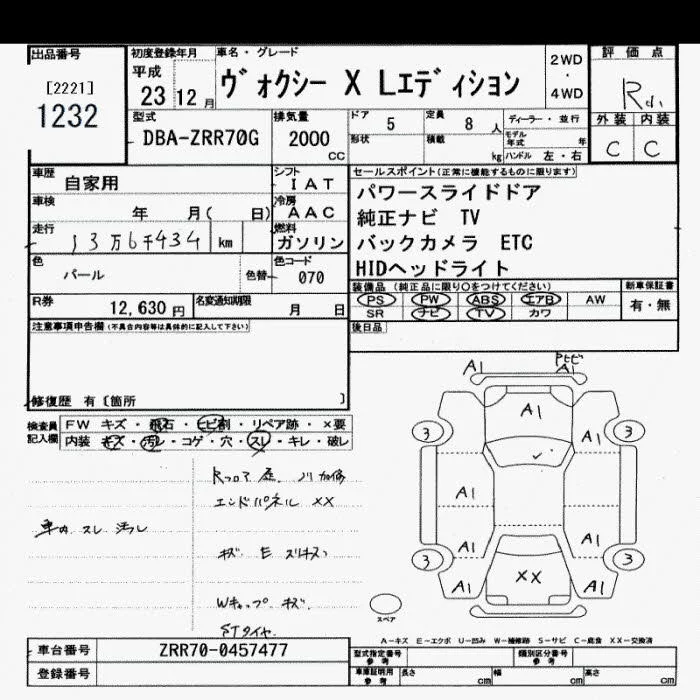 出品番号
[2221]
1232
初度登録年月
平成
23 12月
車名・グレード
ヴォクシー X Lエディション
2WD
・
4WD
評価点
R
外装 内装
C C
型式
DBA-ZRR70G
排気量
2000
CC
ドア 5
定員 8 人
形状
積載 kg
ディーラー・並行
モデル年式 年
ハンドル 左・右
車歴
自家用
シフト
IAT
車検
年 月( 日)
冷房
AAC
走行
13万6千434 km
燃料
ガソリン
色
パール
色替
色コード
070
R券
12,630 円
名変通知期限
月 日
セールスポイント(正常に機能するものに限ります)
パワースライドドア
純正ナビ TV
バックカメラ ETC
HIDヘッドライト
装備品 (純正品に限り○をつけてください)
PS PW ABS エアB AW
SR ナビ TV カワ
新車保証書
有・無
後日品
注意事項申告欄(不具合内容等は具体的に記入して下さい)
修復歴 有〔箇所 〕
検査員記入欄
FW キズ・飛石・ヒビ割・リペア跡・×要
内装 キズ・汚レ・コゲ・穴・スレ・キレ・破レ
車内 スレ 汚レ
Rフロア
エンドパネル XX
キズ E
Wキャップ キズ
STタイヤ
A1
A1
A1
3 3
A1
A1
A1 A1
3 3
A1 A1
XX
スペア
A-キズ E-エクボ U-凹み W-補修跡 S-サビ C-腐食 XX-交換済
車台番号
ZRR70-0457477
登録番号
型式指定番号
参考
類別区分番号
参考
車庫証明用
参考
長さ cm
幅 cm
高さ cm